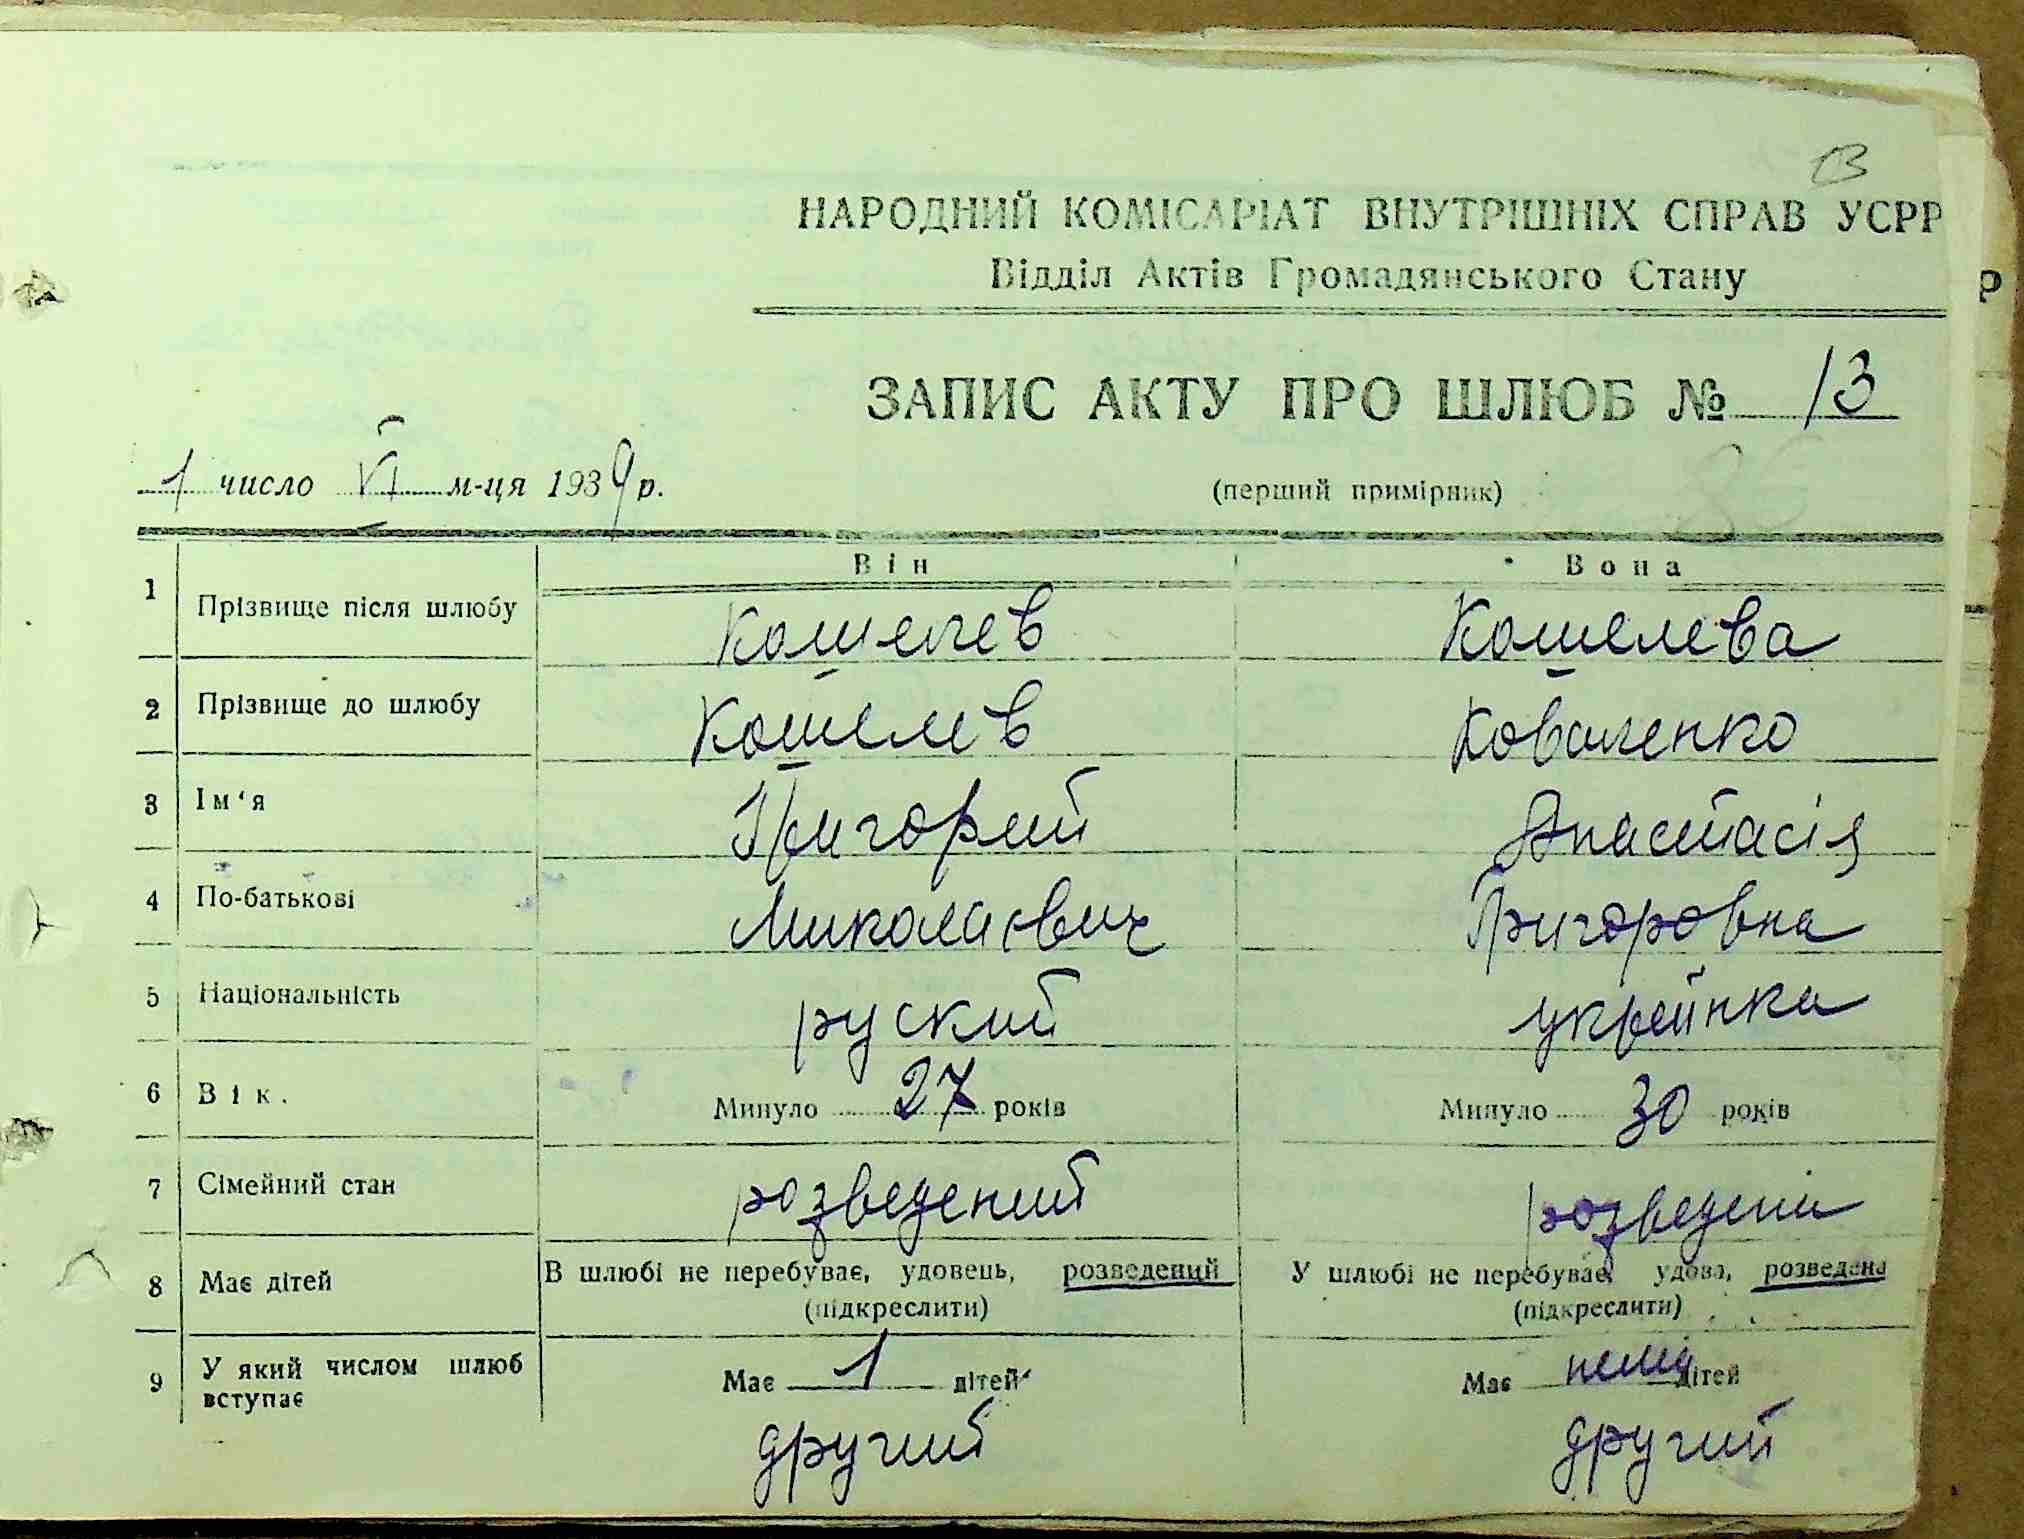 13
НАРОДНИЙ КОМІСАРІАТ ВНУТРІШНІХ СПРАВ УСРР
Відділ Актів Громадянського Стану
ЗАПИС АКТУ ПРО ШЛЮБ № 13
1 число VI м-ця 1939 р.
(перший примірник)
Він Вона
1 Прізвище після шлюбу Кошелев Кошелева
2 Прізвище до шлюбу Кошелев Коваленко
3 Ім‘я Григорий Анастасія
4 По-батькові Миколаєвич Григоровна
5 Національність руский украйнка
6 Вік. Минуло 27 років Минуло 30 років
7 Сімейний стан розведений розведена
8 Має дітей В шлюбі не перебуває, удовець, розведений У шлюбі не перебуває, удова, розведена
(підкреслити) (підкреслити)
9 У який числом шлюб вступає Має 1 дітей Має нема дітей
другий другий